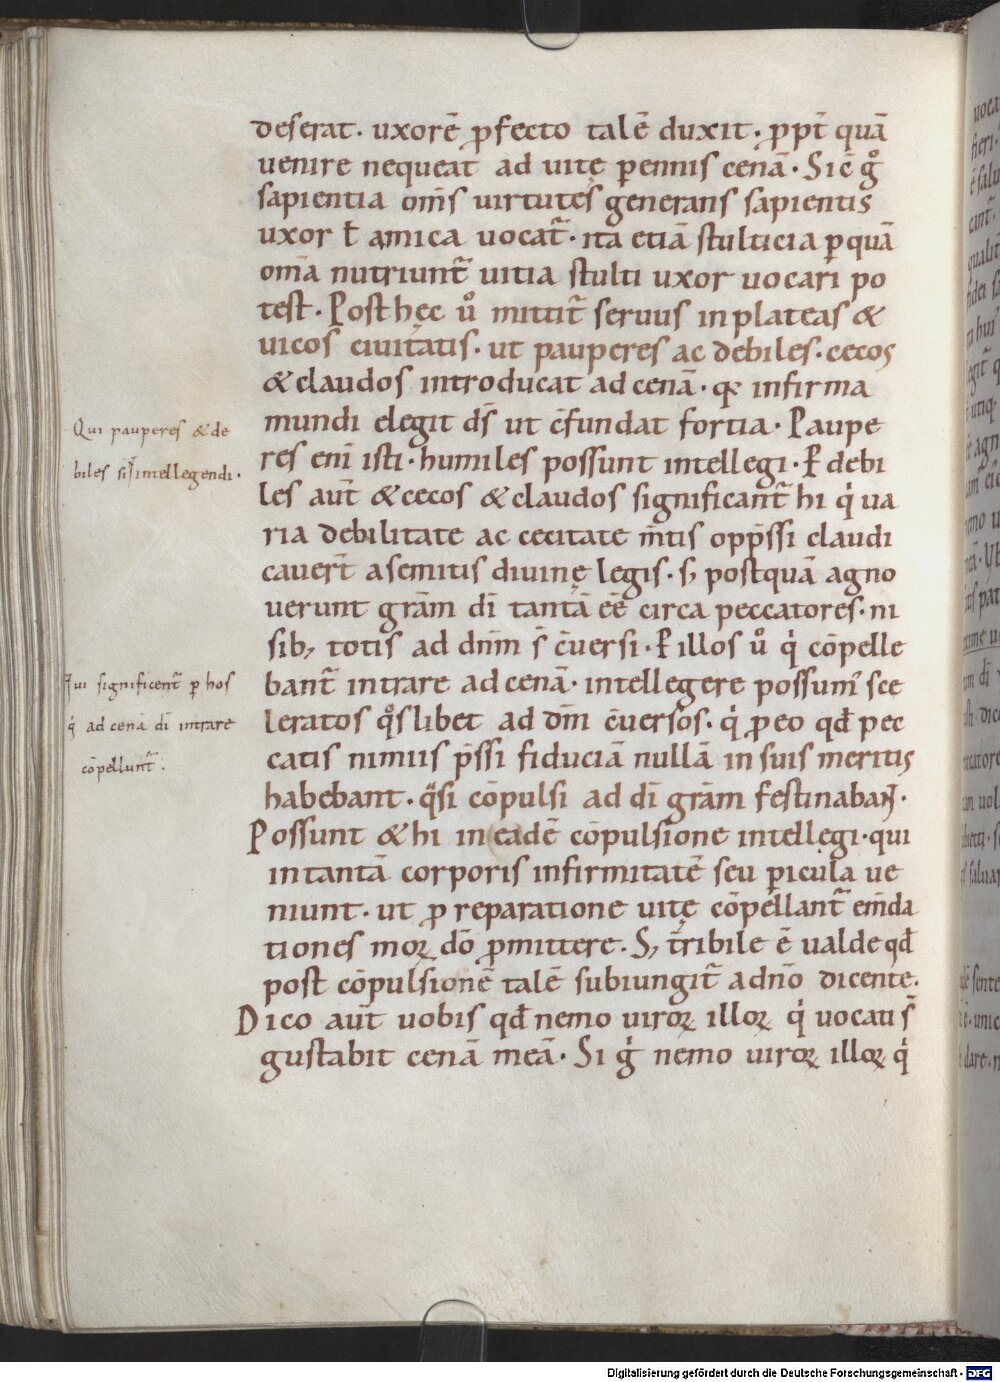 deserat. uxorē ꝓfecto talē duxit. ꝓpt̄ quā
uenire nequeat ad uitę ꝑennis cenā. Sic̄ gͦ
sapientia om̄s uirtutes generans sapientis
uxor ł amica uocat᷑. ita etiā stulticia ꝑquā
om̄a nutriunt᷑ uitia stulti uxor uocari po
test. Post hęc uͦ mittit᷑ seruus in plateas &
uicos ciuitatis. ut pauperes ac debiles. cecos
& claudos introducat ad cenā. infirma
mundi elegit ds̄ ut c̄fundat fortia. Paupe
res eni̅ isti. humiles possunt intellegi. P̄ debi
les aut̄ & cecos & claudos significant᷑ hi qͥ ua
ria debilitate ac cecitate m̄tis opp̄ssi claudi
cauer̄t a semitis diuinę legis. s; postquā agno
uerunt grām dī tantā eē circa peccatores. ni
sib; totis ad dn̄m s̄ c̄uersi. P̄ illos uͦ qͥ cōpelle
bant᷑ intrare ad cenā. intellegere possum᷒ sce
leratos qͦslibet ad dm̄ c̄uersos. qͥ ꝓ eo qđ pec
catis nimiis p̄ssi fiduciā nullā in suis meritis
habebant. qͣsi cōpulsi ad dī grām festinabant.
Possunt & hi in eadē cōpulsione intellegi. qui
in tantā corporis infirmitatē seu ꝑicula ue
niunt. ut ꝓ reparatione uitę cōpellant᷑ em̄da
tiones moꝝ dō ꝓmittere. S; t̄ribile ē ualde qđ
post cōpulsionē talē subiungit᷑ a dn̄o dicente.
Dico aut̄ uobis qđ nemo uiroꝝ illoꝝ qͥ uocati s̄
gustabit cenā meā. Si gͥ nemo uiroꝝ illoꝝ qͥ
Qui pauperes & de
biles sīt intellegendi.
Qui significent᷑ ꝑ hos
qͥ ad cenā dī intrare
cōpellunt᷑.
Digitalisierung gefördert durch die Deutsche Forschungsgemeinschaft - DFG